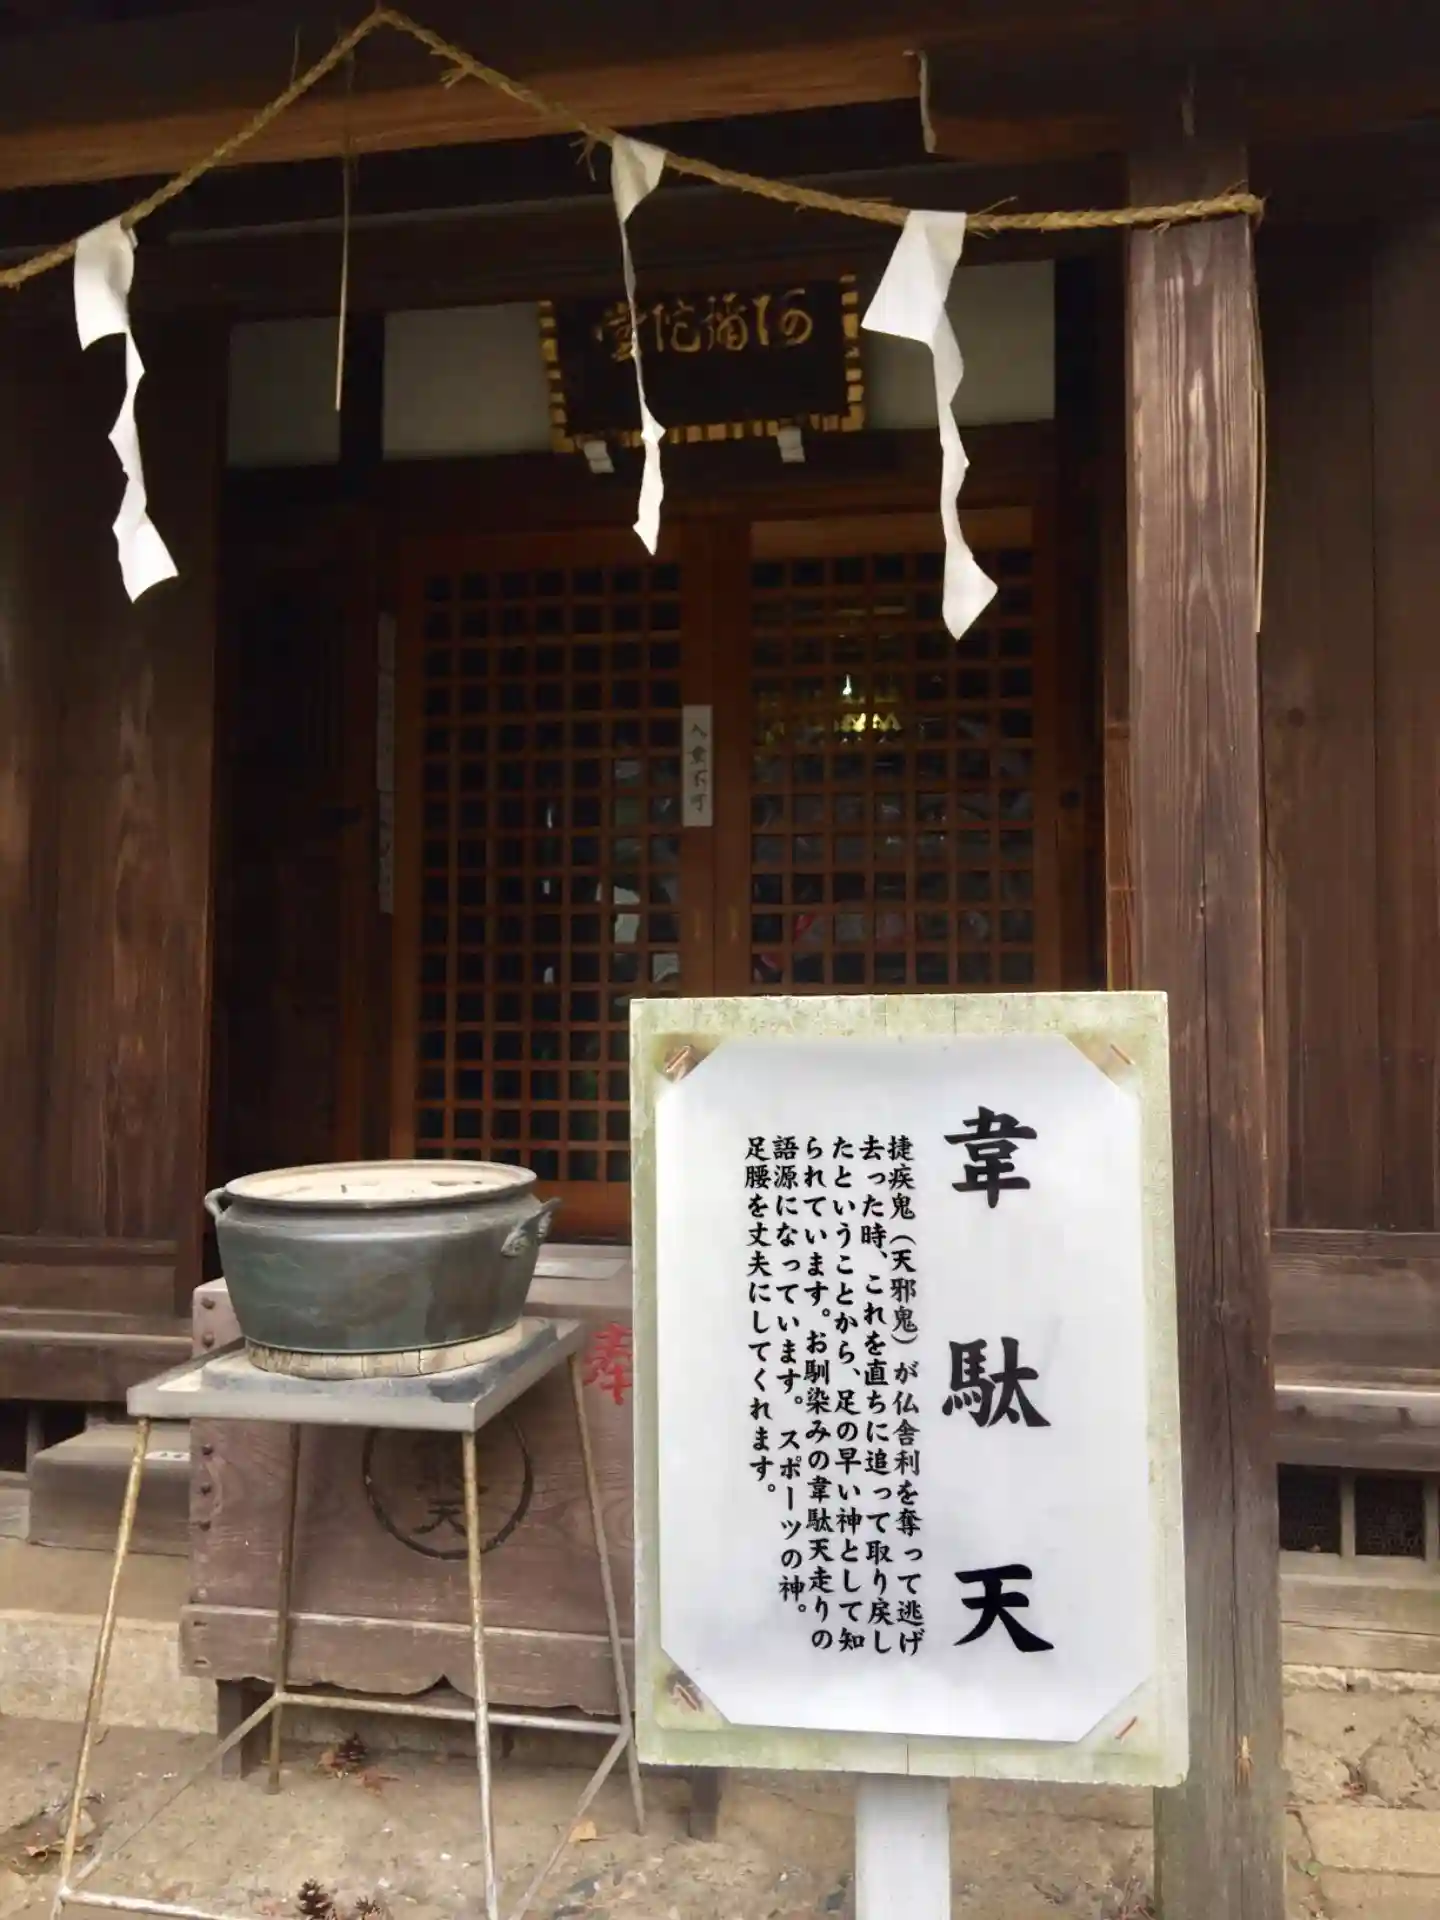 阿彌陀堂
入堂不可
奉
天
韋駄天
捷疾鬼（天邪鬼）が仏舎利を奪って逃げ
去った時、これを直ちに追って取り戻し
たということから、足の早い神として知
られています。お馴染みの韋駄天走りの
語源になっています。スポーツの神。
足腰を丈夫にしてくれます。